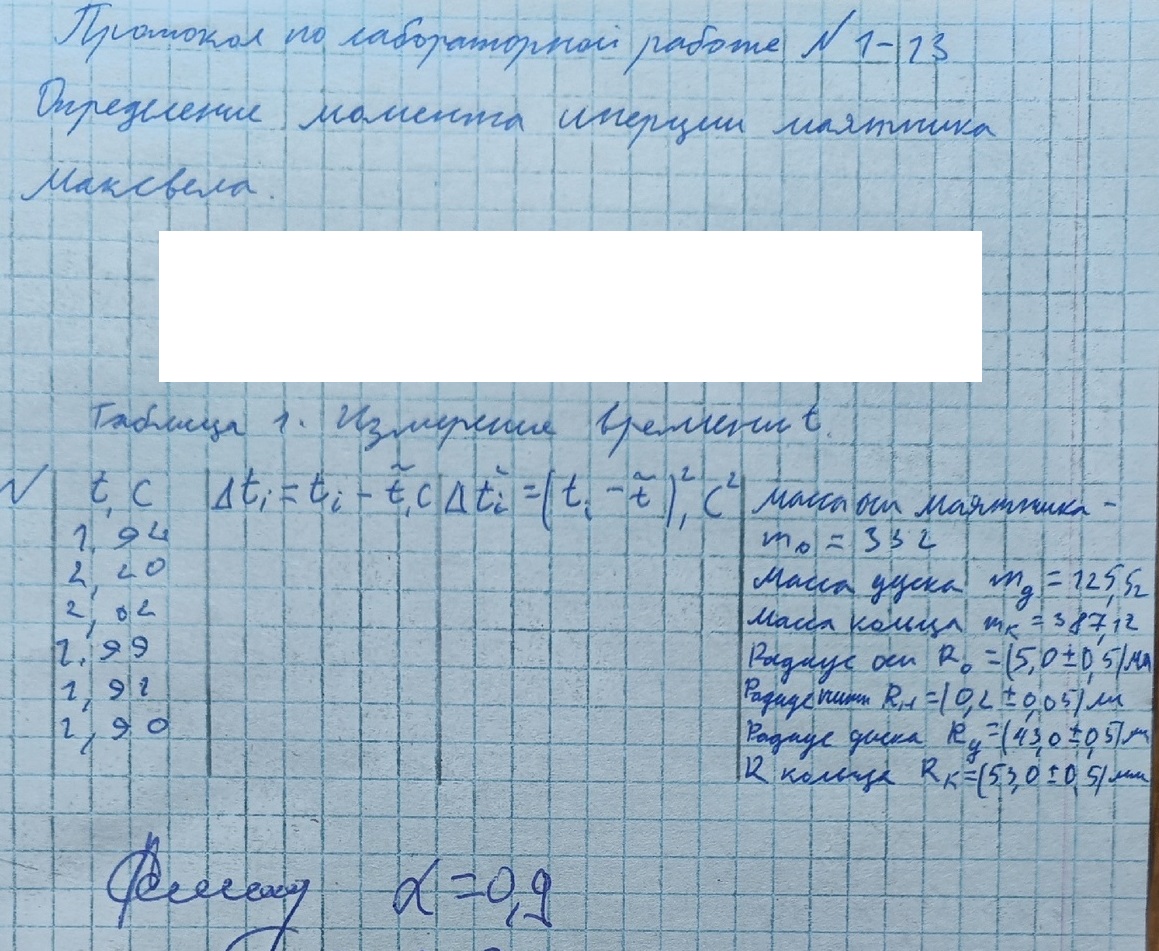 Протокол по лабораторной работе N 1-13
Определение момента инерции маятника
Максвела.
Таблица 1. Измерение времени t.
N t, c Δti = ti - t̃, c Δti² = (ti - t̃)², c²
1,94
2,20
2,02
1,99
1,92
1,90
масса оси маятника -
m₀ = 33г
Масса диска mд = 125,5г
Масса кольца mк = 387,1г
Радиус оси R₀ = (5,0 ± 0,5) мм
Радиус нити Rн = (0,2 ± 0,05) мм
Радиус диска Rд = (43,0 ± 0,5) м
R кольца Rк = (53,0 ± 0,5) мм
α = 0,9